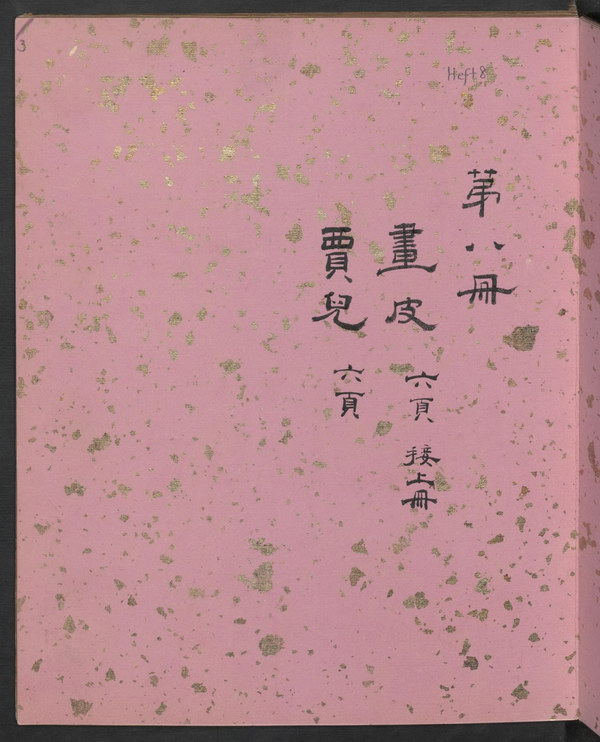 3
Heft 8
苐八冊
畫皮 六頁 接上冊
賈兒 六頁